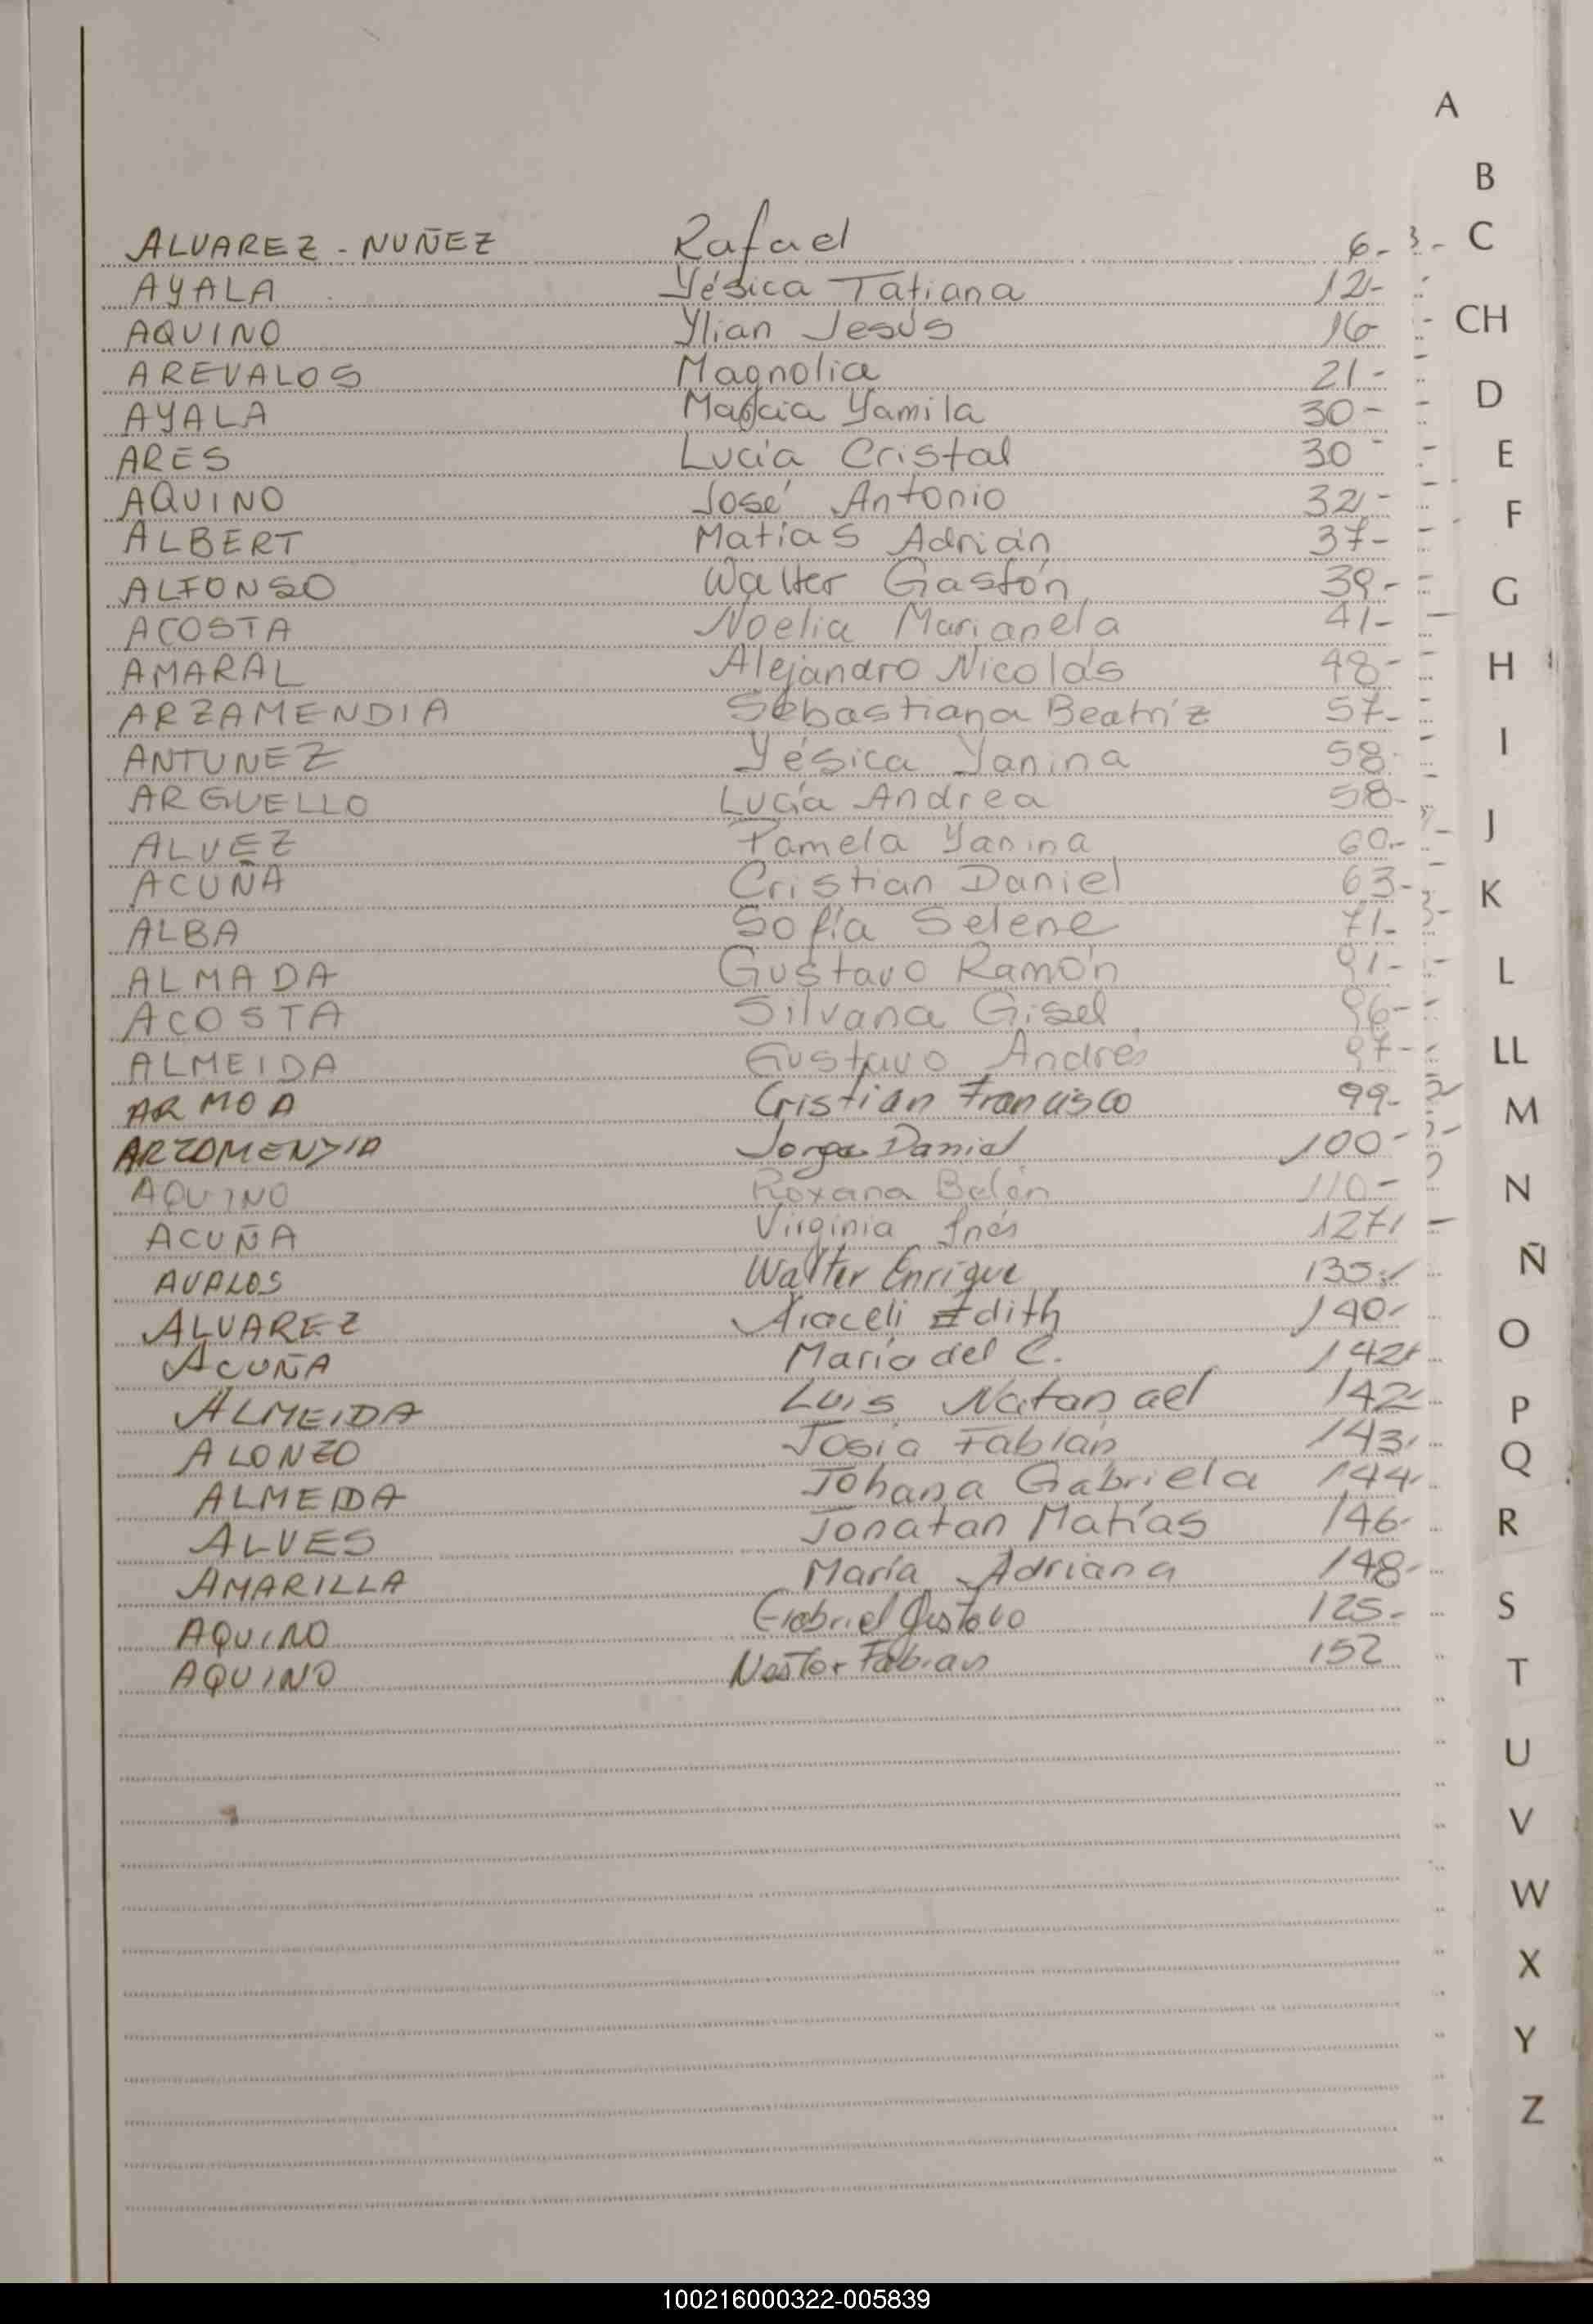 A
B
ALVAREZ - NUÑEZ Rafael 6- C
AYALA Yésica Tatiana 12-
AQUINO Ylian Jesús 16- CH
AREVALOS Magnolia 21-
AYALA Marcia Yamila 30- D
ARES Lucía Cristal 30- E
AQUINO José Antonio 32-
ALBERT Matías Adrián 37- F
ALFONSO Walter Gastón 39- G
ACOSTA Noelia Marianela 41-
AMARAL Alejandro Nicolás 48- H
ARZAMENDIA Sebastiana Beatríz 57-
ANTUNEZ Yésica Yanina 58- I
ARGUELLO Lucía Andrea 58-
ALVEZ Pamela Yanina 60- J
ACUÑA Cristian Daniel 63- K
ALBA Sofía Selene 71-
ALMADA Gustavo Ramón 91- L
ACOSTA Silvana Gisel 96-
ALMEIDA Gustavo Andrés 97- LL
ARMOA Cristian Francisco 99- M
ARZAMENDIA Jorge Daniel 100-
AQUINO Roxana Belén 110- N
ACUÑA Virginia Inés 127
AVALOS Walter Enrique 135 Ñ
ALVAREZ Araceli Edith 140
ACUÑA María del C. 142 O
ALMEIDA Luis Natanael 142 P
ALONZO Josía Fabián 143 Q
ALMEIDA Johana Gabriela 144
ALVES Jonatan Matías 146 R
AMARILLA María Adriana 148-
AQUINO Gabriel Gustavo 125- S
AQUINO Nestor Fabian 152 T
U
V
W
X
Y
Z
100216000322-005839